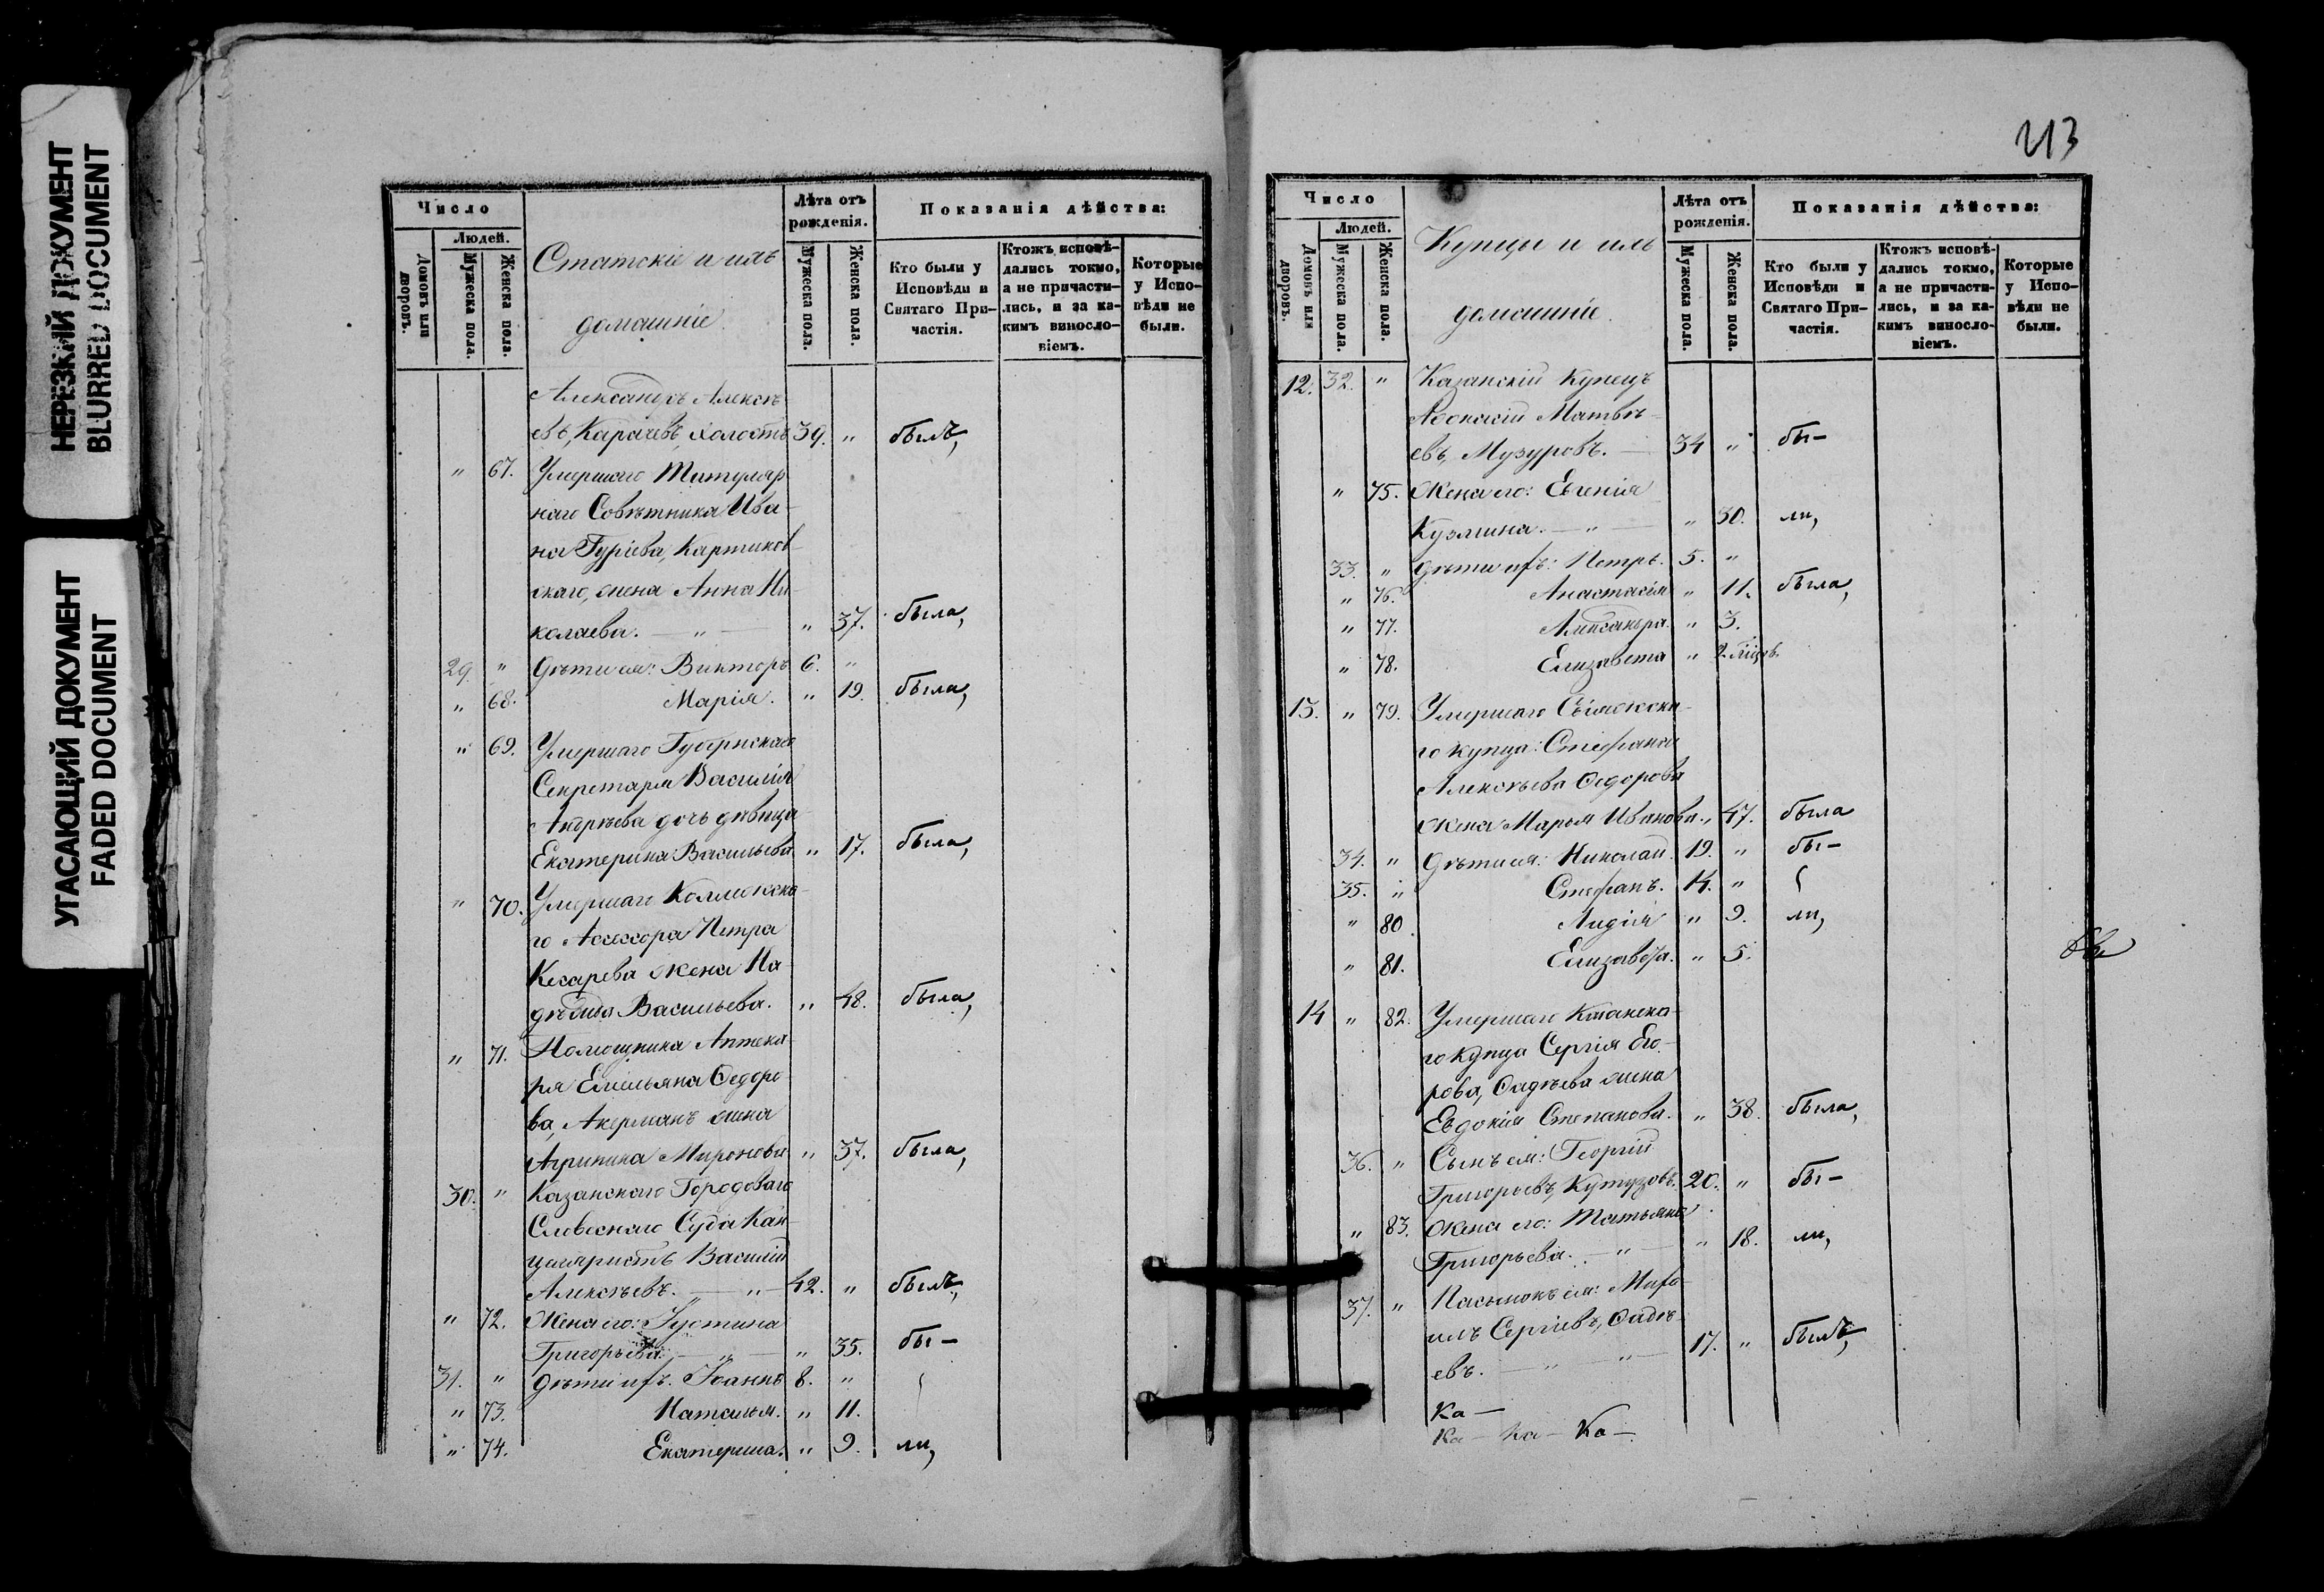 НЕРЕЗКИЙ ДОКУМЕНТ
BLURRED DOCUMENT
УГАСАЮЩИЙ ДОКУМЕНТ
FADED DOCUMENT
Число
Людей.
Домовъ или дворовъ.
Мужеска пола.
Женска пола.
Статскіе и ихъ
домашніе.
Лѣта отъ рожденія.
Мужеска пола.
Женска пола.
Показанія дѣйства:
Кто были у Исповѣди и Святаго При-частія.
Ктожъ исповѣ-дались токмо, а не причасти-лись, и за ка-кимъ винословіемъ.
Которые у Испо-вѣди не были.
Александръ Алексѣ-
евъ, Карачевъ, холостъ 39. " былъ,
" 67. Умершаго Титуляр-
наго Совѣтника Ива-
на Гуріева, Картиков-
скаго, жена Анна Ни-
колаева. — " — " 37. была,
29. " Дѣти ея: Викторъ 6. "
" 68. Марія. " 19. была,
" 69. Умершаго Губернскаго
Секретаря Василія
Андреева дочь дѣвица
Екатерина Васильева " 17. была,
" 70. Умершаго Коллежска-
го Ассессора Петра
Кесарева жена На-
дѣжда Васильева. " 48. была,
" 71. Помощника Аптека-
ря Емильяна Ѳедоро-
ва, Акерманъ жена
Агрипина Миронова " 37. была,
30. " Казанскаго Городоваго
Словеснаго Суда Кан-
целяристъ Василій
Алексѣевъ. — " — 42. " былъ,
" 72. Жена его: Іустина
Григорьева. — " — " 35. бы-
31. " Дѣти ихъ: Іоаннъ 8. "
" 73. Наталья. " 11.
" 74. Екатерина. " 9. ли,
213
Число
Людей.
Домовъ или дворовъ.
Мужеска пола.
Женска пола.
Купцы и ихъ
домашніе.
Лѣта отъ рожденія.
Мужеска пола.
Женска пола.
Показанія дѣйства:
Кто были у Исповѣди и Святаго При-частія.
Ктожъ исповѣ-дались токмо, а не причасти-лись, и за ка-кимъ винословіемъ.
Которые у Испо-вѣди не были.
12. 32. " Казанскій Купецъ
Аѳонасій Матвѣ-
евъ, Музуровъ. — 34 " бы-
" 75. Жена его: Евгенія
Кузмина. — " — " 30. ли,
33. " Дѣти ихъ: Петръ. 5. "
" 76. Анастасія " 11. была,
" 77. Александра. " 3.
" 78. Елизавета " 2.
13. " 79. Умершаго Свіяжска-
го купца: Стефана
Алексѣева Ѳедорова
жена Марья Иванова. " 47. была
34. " Дѣти ея: Николай. 19. " бы-
35. " Стефанъ. 14. "
" 80. Лидія " 9. ли,
" 81. Елизавета. " 5.
14 " 82. Умершаго Казанска-
го купца Сергія Его-
рова, Ѳадѣева жена
Евдокія Степанова. " 38. была,
36. " Сынъ ея: Георгій
Григорьевъ, Кутузовъ. 20. " бы-
" 83. Жена его: Татьяна
Григорьева. — " — " 18. ли,
37. " Пасынокъ ея: Миха-
илъ Сергіевъ, Ѳадѣ-
евъ. — " — " — 17. " былъ,
Ка —
Ка — Ка — Ка —